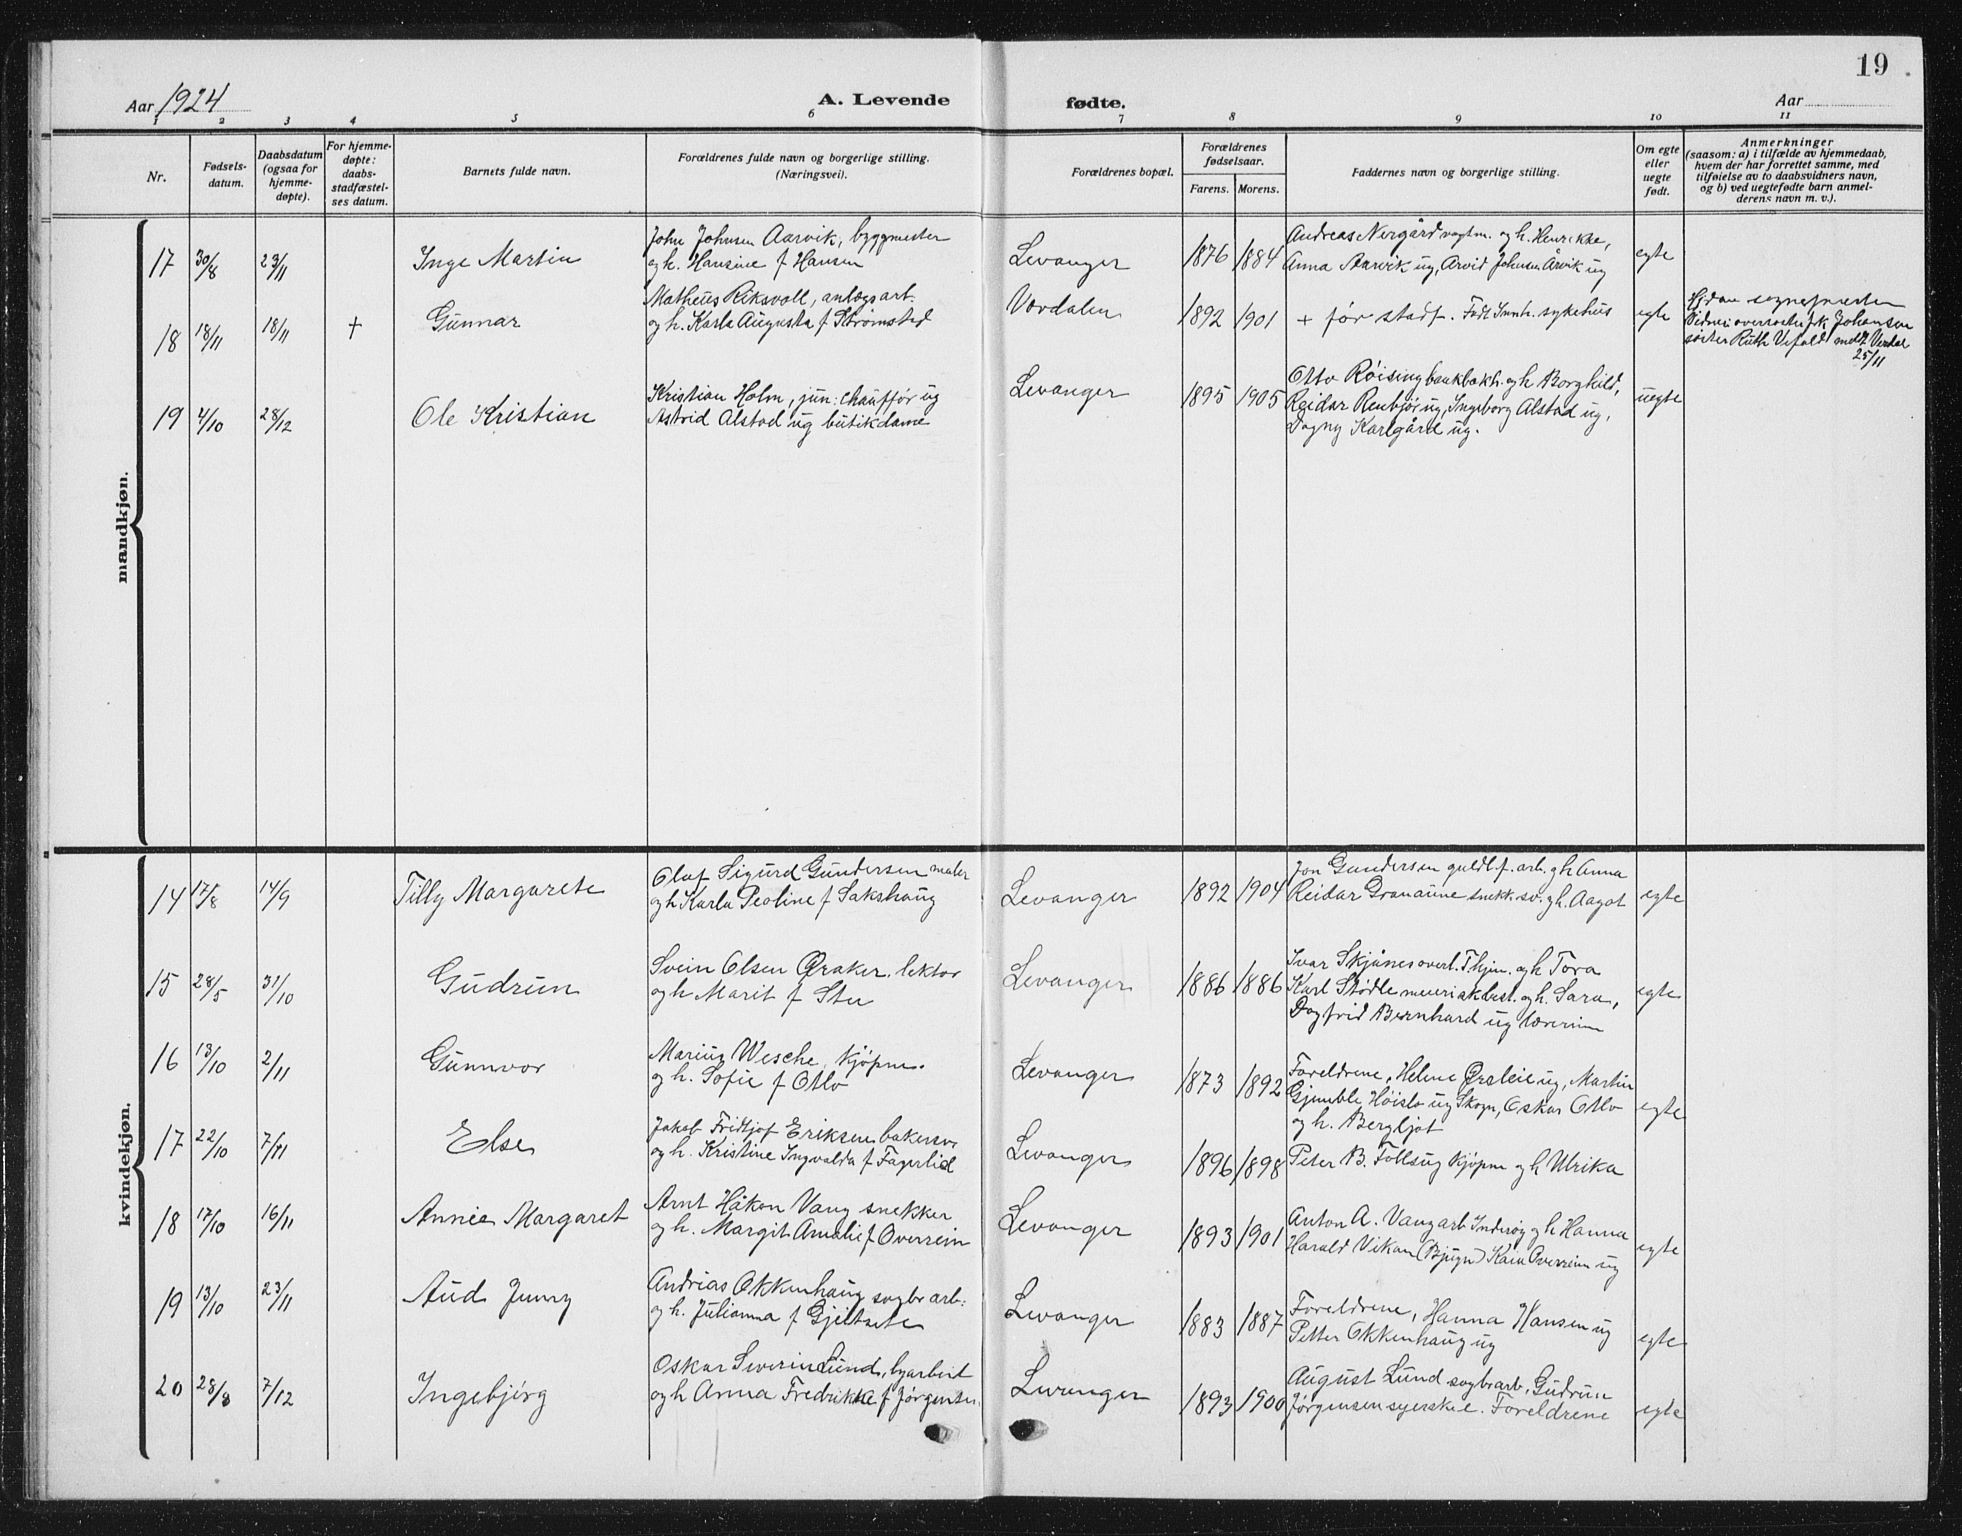 19
Aar 1924
A. Levende
fødte.
Aar
1 2 3 4 5 6 7 8 9 10 11
Nr.
Fødsels-
datum.
Daabsdatum
(ogsaa for
hjemme-
døpte).
For hjemme-
døpte:
daabs-
stadfæstel-
ses datum.
Barnets fulde navn.
Forældrenes fulde navn og borgerlige stilling.
(Næringsvei).
Forældrenes bopæl.
Forældrenes
fødselsaar.
Farens. Morens.
Faddernes navn og borgerlige stilling.
Om egte
eller
uegte
født.
Anmerkninger
(saasom: a) i tilfælde av hjemmedaab,
hvem der har forrettet samme, med
tilføielse av to daabsvidners navn,
og b) ved uegtefødte barn anmel-
derens navn m. v.).
mandkjøn.
17 30/8 23/11 Inge Martin
John Johnsen Aarvik, byggmester
og h. Hansine f Hansen
Levanger 1876 1884
Andreas Nergård vogtm. og h. Henrikke,
Anna Aarvik ug, Arvid Johnsen Årvik ug
egte
18 18/11 18/11 + Gunnar
Matheus Riksvoll, anlegsarb.
og h. Karla Augusta f Strømsted
Værdalen 1892 1901
+ før stadf. Født Innh. sykehus
egte
Hjdøu sognepresten
Johansen
søster Ruth Verdal
25/11
19 4/10 28/12 Ole Kristian
Kristian Holm, jun: chauffør ug
Astrid Alstad ug butikdame
Levanger 1895 1905
Otto Røising bankbokh. og h Borghild,
Reidar Renbjør ug, Ingeborg Alstad ug,
Dagny Karlgård ug.
uegte
kvindekjøn.
14 17/8 14/9 Tilly Margarete
Olaf Sigurd Gundersen maler
og h Karla Peoline f Sakshaug
Levanger 1892 1904
Jon Gundersen guldl.f. arb. g h Anna
Reidar Granaune snekk. sv. g h. Aagot
egte
15 28/5 31/10 Gudrun
Svein Olsen Øraker. lektor
og h Marit f Stu
Levanger 1886 1886
Ivar Skjånes overl. Thjm. og h Tora
Karl Stødle meieriakbest. og h. Sara,
Dagfrid Bernhard ug lærerinne
egte
16 13/10 2/11 Gunnvor
Marius Wesche, kjøpm.
og h. Sofie f Otlo
Levanger 1873 1892
Foreldrene, Helene ug, Martin
Gjemble Høislo ug Skogn, Oskar Otlo
og h. Bergljot
egte
17 22/10 7/11 Else
Jakob Fridtjof Eriksen bakersv.
og h. Kristine Ingvalda f Fagerlid
Levanger 1896 1898
Peter B. kjøpm g h Ulrika
18 17/10 16/11 Annie Margaret
Arnt Håkon Vang snekker
og h. Margit Amalie f Overrein
Levanger 1893 1901
Anton A. Vang arb Inderøy g h Hanna
Harald Vikan (Bjugn) Kara Overrein ug
egte
19 13/10 23/11 Aud Jenny
Andrias Okkenhaug sagbr arb:
og h. Julianna f Gjeltsete
Levanger 1883 1887
Foreldrene, Hanna Hansen ug
Petter Okkenhaug ug
egte
20 28/8 7/12 Ingebjørg
Oskar Severin Lund, byarbeid
og h Anna Fredrikke f Jørgensen.
Levanger 1893 1900
August Lund sagbrarb, Gudrun
Jørgensen syerske. Foreldrene
egte